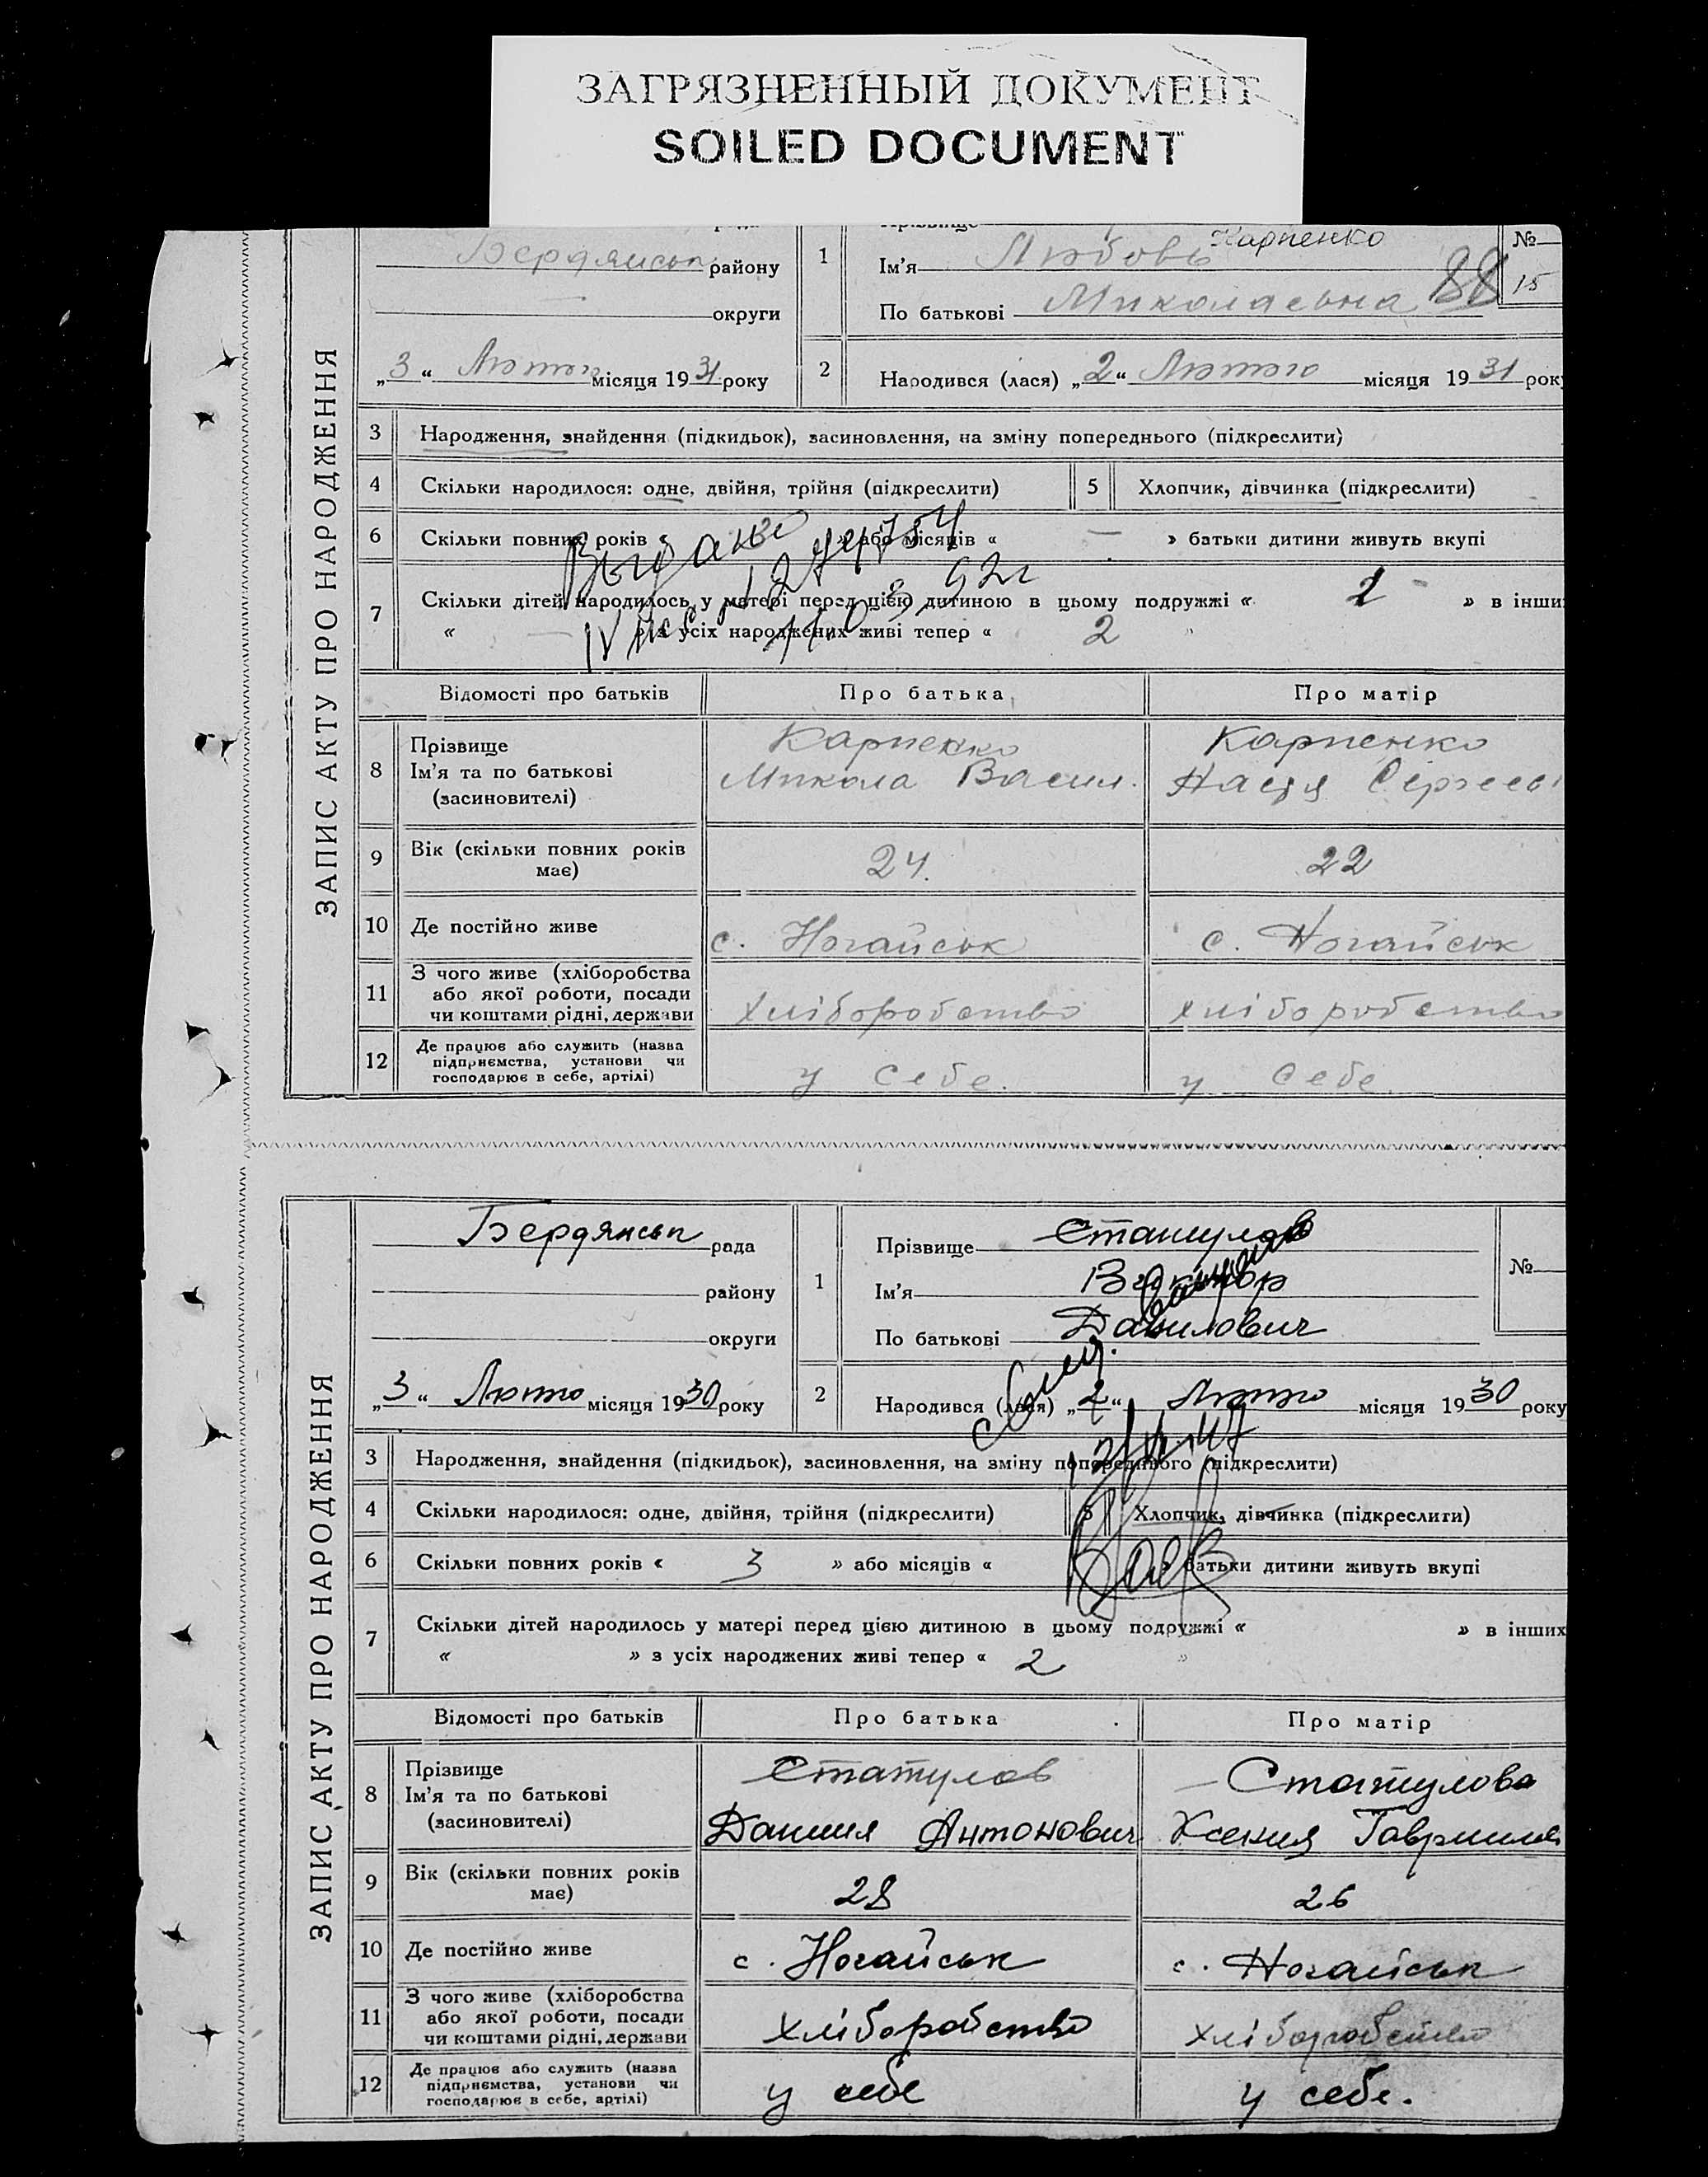 ЗАГРЯЗНЕННЫЙ ДОКУМЕНТ
SOILED DOCUMENT
ЗАПИС АКТУ ПРО НАРОДЖЕННЯ
Бердянськ району
округи
„3“ Лютого місяця 1931 року
1
Карпенко
Ім'я Любовь
По батькові Миколаєвна
88
№
15
2
Народився (лася) „2“ Лютого місяця 1931 рок
3 Народження, знайдення (підкидьок), засиновлення, на зміну попереднього (підкреслити)
4 Скільки народилося: одне, двійня, трійня (підкреслити)
5 Хлопчик, дівчинка (підкреслити)
6 Скільки повних років « » або місяців « — » батьки дитини живуть вкупі
7 Скільки дітей народилось у матері перед цією дитиною в цьому подружжі « 2 » в інши
« — » з усіх народжених живі тепер « 2 »
Відомості про батьків
Про батька
Про матір
8 Прізвище
Ім'я та по батькові
(засиновителі)
Карпенко
Микола Васил.
Карпенко
Настя Сергеев
9 Вік (скільки повних років
має)
24.
22
10 Де постійно живе
с. Ногайськ
с. Ногайськ
11 З чого живе (хліборобства
або якої роботи, посади
чи коштами рідні, держави
хліборобство
хліборобство
12 Де працює або служить (назва
підприємства, установи чи
господарює в себе, артілі)
у себе.
у себе.
ЗАПИС АКТУ ПРО НАРОДЖЕННЯ
Бердянськ рада
району
округи
„3“ Лютого місяця 1930 року
1
Прізвище Статулов
Ім'я Віктор
По батькові Данилович
№
2
Народився (лася) „2“ Лютого місяця 1930 року
3 Народження, знайдення (підкидьок), засиновлення, на зміну попереднього (підкреслити)
4 Скільки народилося: одне, двійня, трійня (підкреслити)
5 Хлопчик, дівчинка (підкреслити)
6 Скільки повних років « 3 » або місяців « » батьки дитини живуть вкупі
7 Скільки дітей народилось у матері перед цією дитиною в цьому подружжі « » в інших
« » з усіх народжених живі тепер « 2 »
Відомості про батьків
Про батька
Про матір
8 Прізвище
Ім'я та по батькові
(засиновителі)
Статулов
Данил Антонович
Статулова
Ксения Гаврилов
9 Вік (скільки повних років
має)
28
26
10 Де постійно живе
с. Ногайськ
с. Ногайськ
11 З чого живе (хліборобства
або якої роботи, посади
чи коштами рідні, держави
хліборобство
хліборобство
12 Де працює або служить (назва
підприємства, установи чи
господарює в себе, артілі)
у себе
у себе.